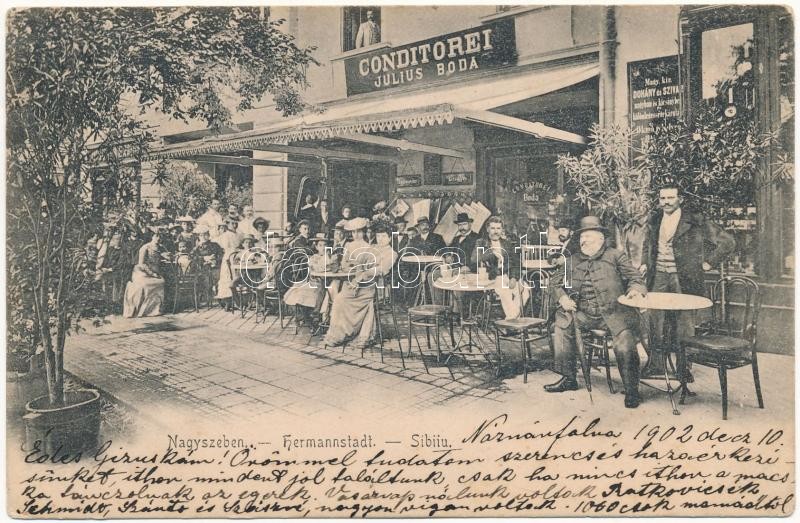 CONDITOREI
JULIUS BODA
Magy. kir.
DOHÁNY és SZIVA
CONDITOREI
Boda
darabanth
Nagyszeben. — Hermannstadt. — Sibiiu.
Náznánfalva 1902 decz 10.
Édes Gizuskám! Örömmel tudatom szerencsés hazaérkezé-
sünket, ithon mindent jól találtunk, csak ha nincs ithon a macs-
ka tánczolnak az egerek. Vasárnap nálunk voltak Ratkovicsék
Schmidt, Szántó és nagyon vígan voltak. 1000 csók mamádtól